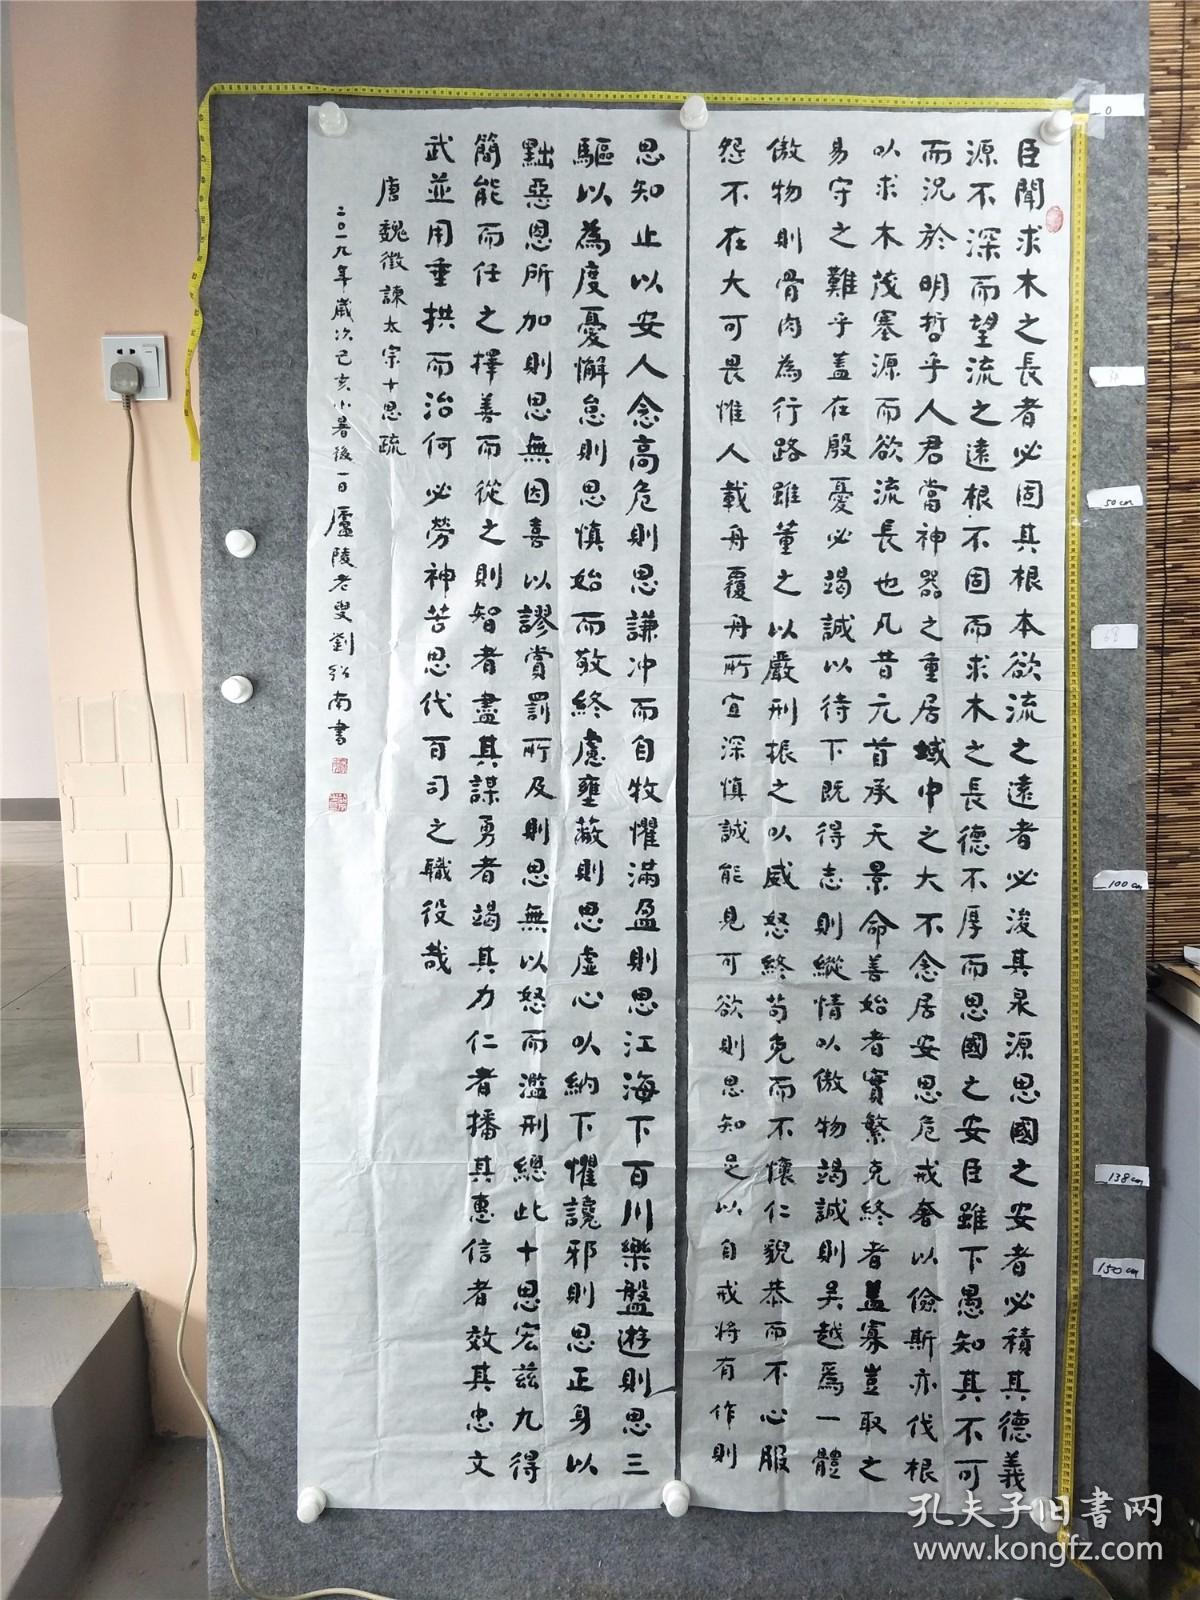 臣聞求木之長者必固其根本欲流之遠者必浚其泉源思國之安者必積其德義
源不深而望流之遠根不固而求木之長德不厚而思國之安臣雖下愚知其不可
而況於明哲乎人君當神器之重居域中之大不念居安思危戒奢以儉斯亦伐根
以求木茂塞源而欲流長也凡昔元首承天景命善始者實繁克終者蓋寡豈取之
易守之難乎蓋在殷憂必竭誠以待下既得志則縱情以傲物竭誠則吴越為一體
傲物則骨肉為行路雖董之以嚴刑振之以威怒終苟免而不懷仁貌恭而不心服
怨不在大可畏惟人載舟覆舟所宜深慎誠能見可欲則思知足以自戒將有作則
思知止以安人念高危則思謙沖而自牧懼滿盈則思江海下百川樂盤遊則思三
驅以為度憂懈怠則思慎始而敬終慮壅蔽則思虛心以納下懼讒邪則思正身以
黜惡恩所加則思無因喜以謬賞罰所及則思無以怒而濫刑總此十思宏茲九得
簡能而任之擇善而從之則智者盡其謀勇者竭其力仁者播其惠信者效其忠文
武並用垂拱而治何必勞神苦思代百司之職役哉
唐魏徵諫太宗十思疏
二〇一九年歲次己亥小暑後一日廬陵老叟劉紹南書
0
50cm
68
100cm
138cm
150cm
孔夫子旧书网
www.kongfz.com